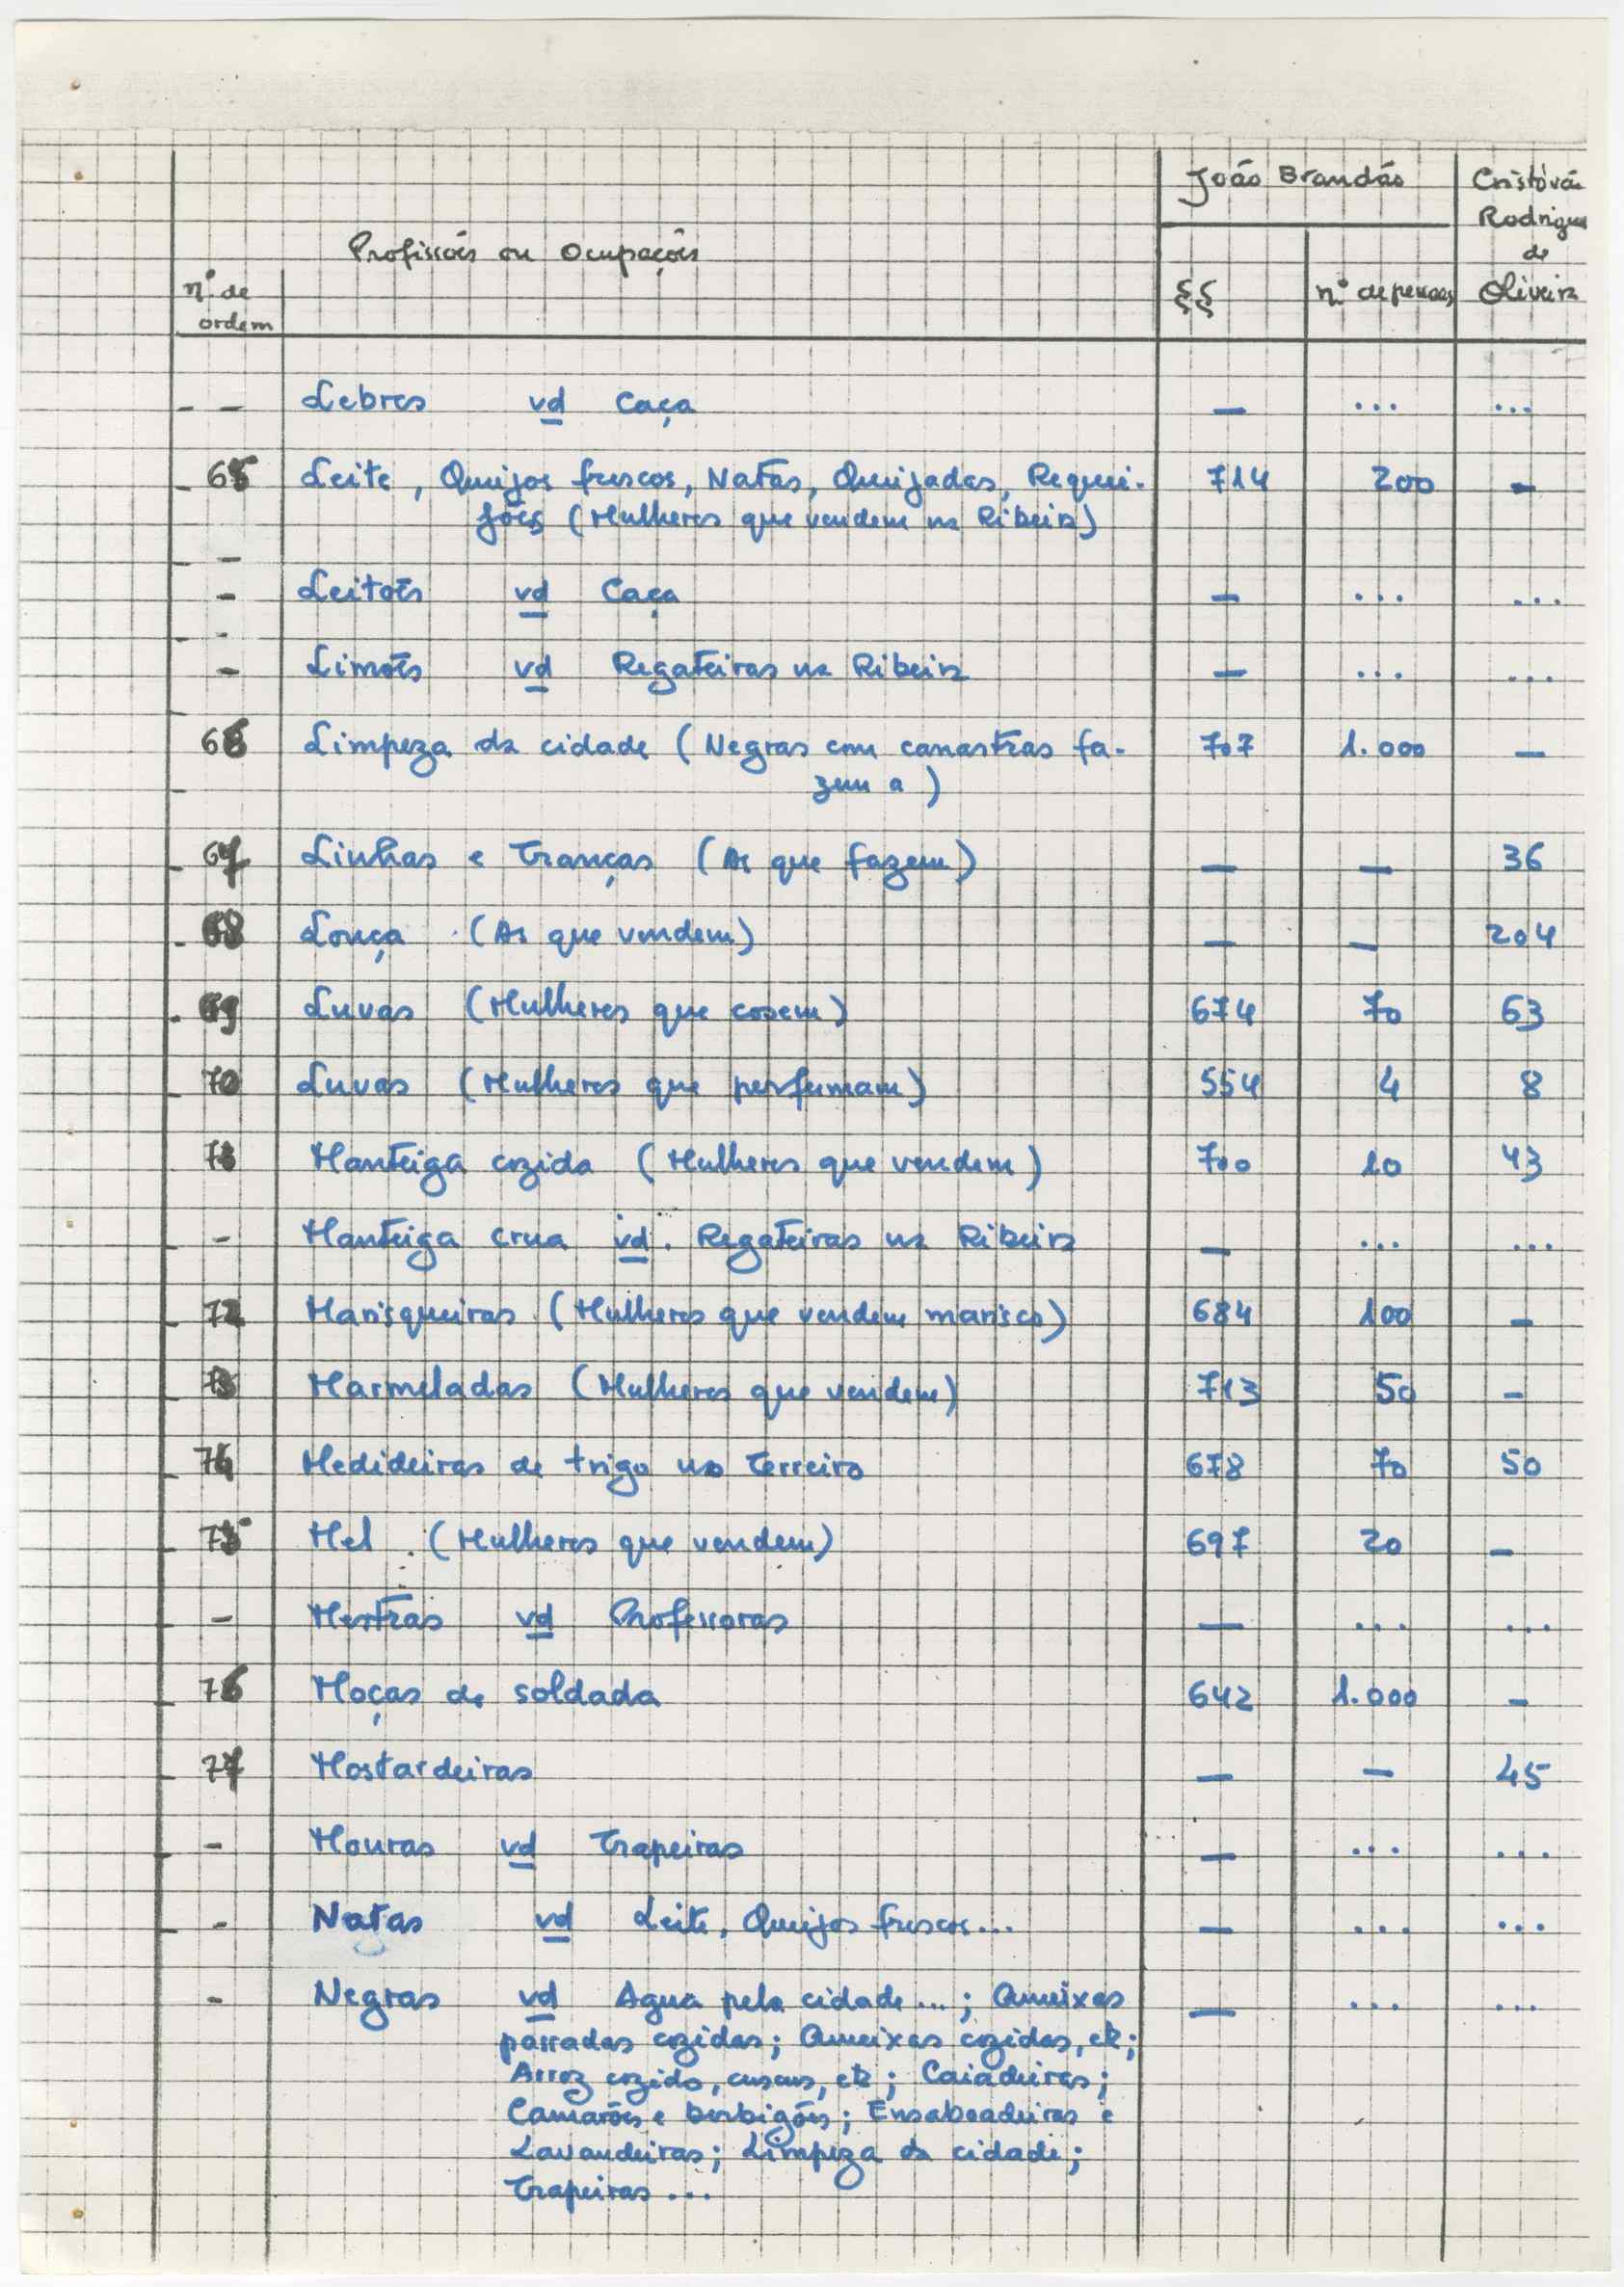 João Brandão Cristóvã
Rodrigue
Profissões ou Ocupações de
nº de ordem §§ nº de pessoas Oliveira
- - Lebres vd Caça — ... ...
65 Leite, Queijos frescos, Natas, Queijadas, Requei- 714 200 -
jões (Mulheres que vendem na Ribeira)
- Leitões vd Caça — ... ...
- Limões vd Regateiras na Ribeira — ... ...
66 Limpeza da cidade (Negras com canastras fa- 707 1.000 —
zem a)
67 Linhas e Tranças (As que fazem) — — 36
68 Louça (As que vendem) — — 204
69 Luvas (Mulheres que cosem) 674 70 63
70 Luvas (Mulheres que perfumam) 554 4 8
71 Manteiga cozida (Mulheres que vendem) 700 10 43
- Manteiga crua vd. Regateiras na Ribeira — ... ...
72 Marisqueiras (Mulheres que vendem marisco) 684 100 -
73 Marmeladas (Mulheres que vendem) 713 50 -
74 Medideiras de trigo no Terreiro 678 70 50
75 Mel (Mulheres que vendem) 697 20 -
- Mestras vd Professoras — ... ...
76 Moças de soldada 642 1.000 -
77 Mostardeiras — — 45
- Mouras vd Trapeiras — ... ...
- Natas vd Leite, Queijos frescos... — ... ...
- Negras vd Agua pela cidade...; Ameixas — ... ...
passadas cozidas; Ameixas cozidas, etc;
Arroz cozido, cuscus, etc; Caiadeiras;
Camarões e berbigões; Ensaboadeiras e
Lavandeiras; Limpeza da cidade;
Trapeiras...